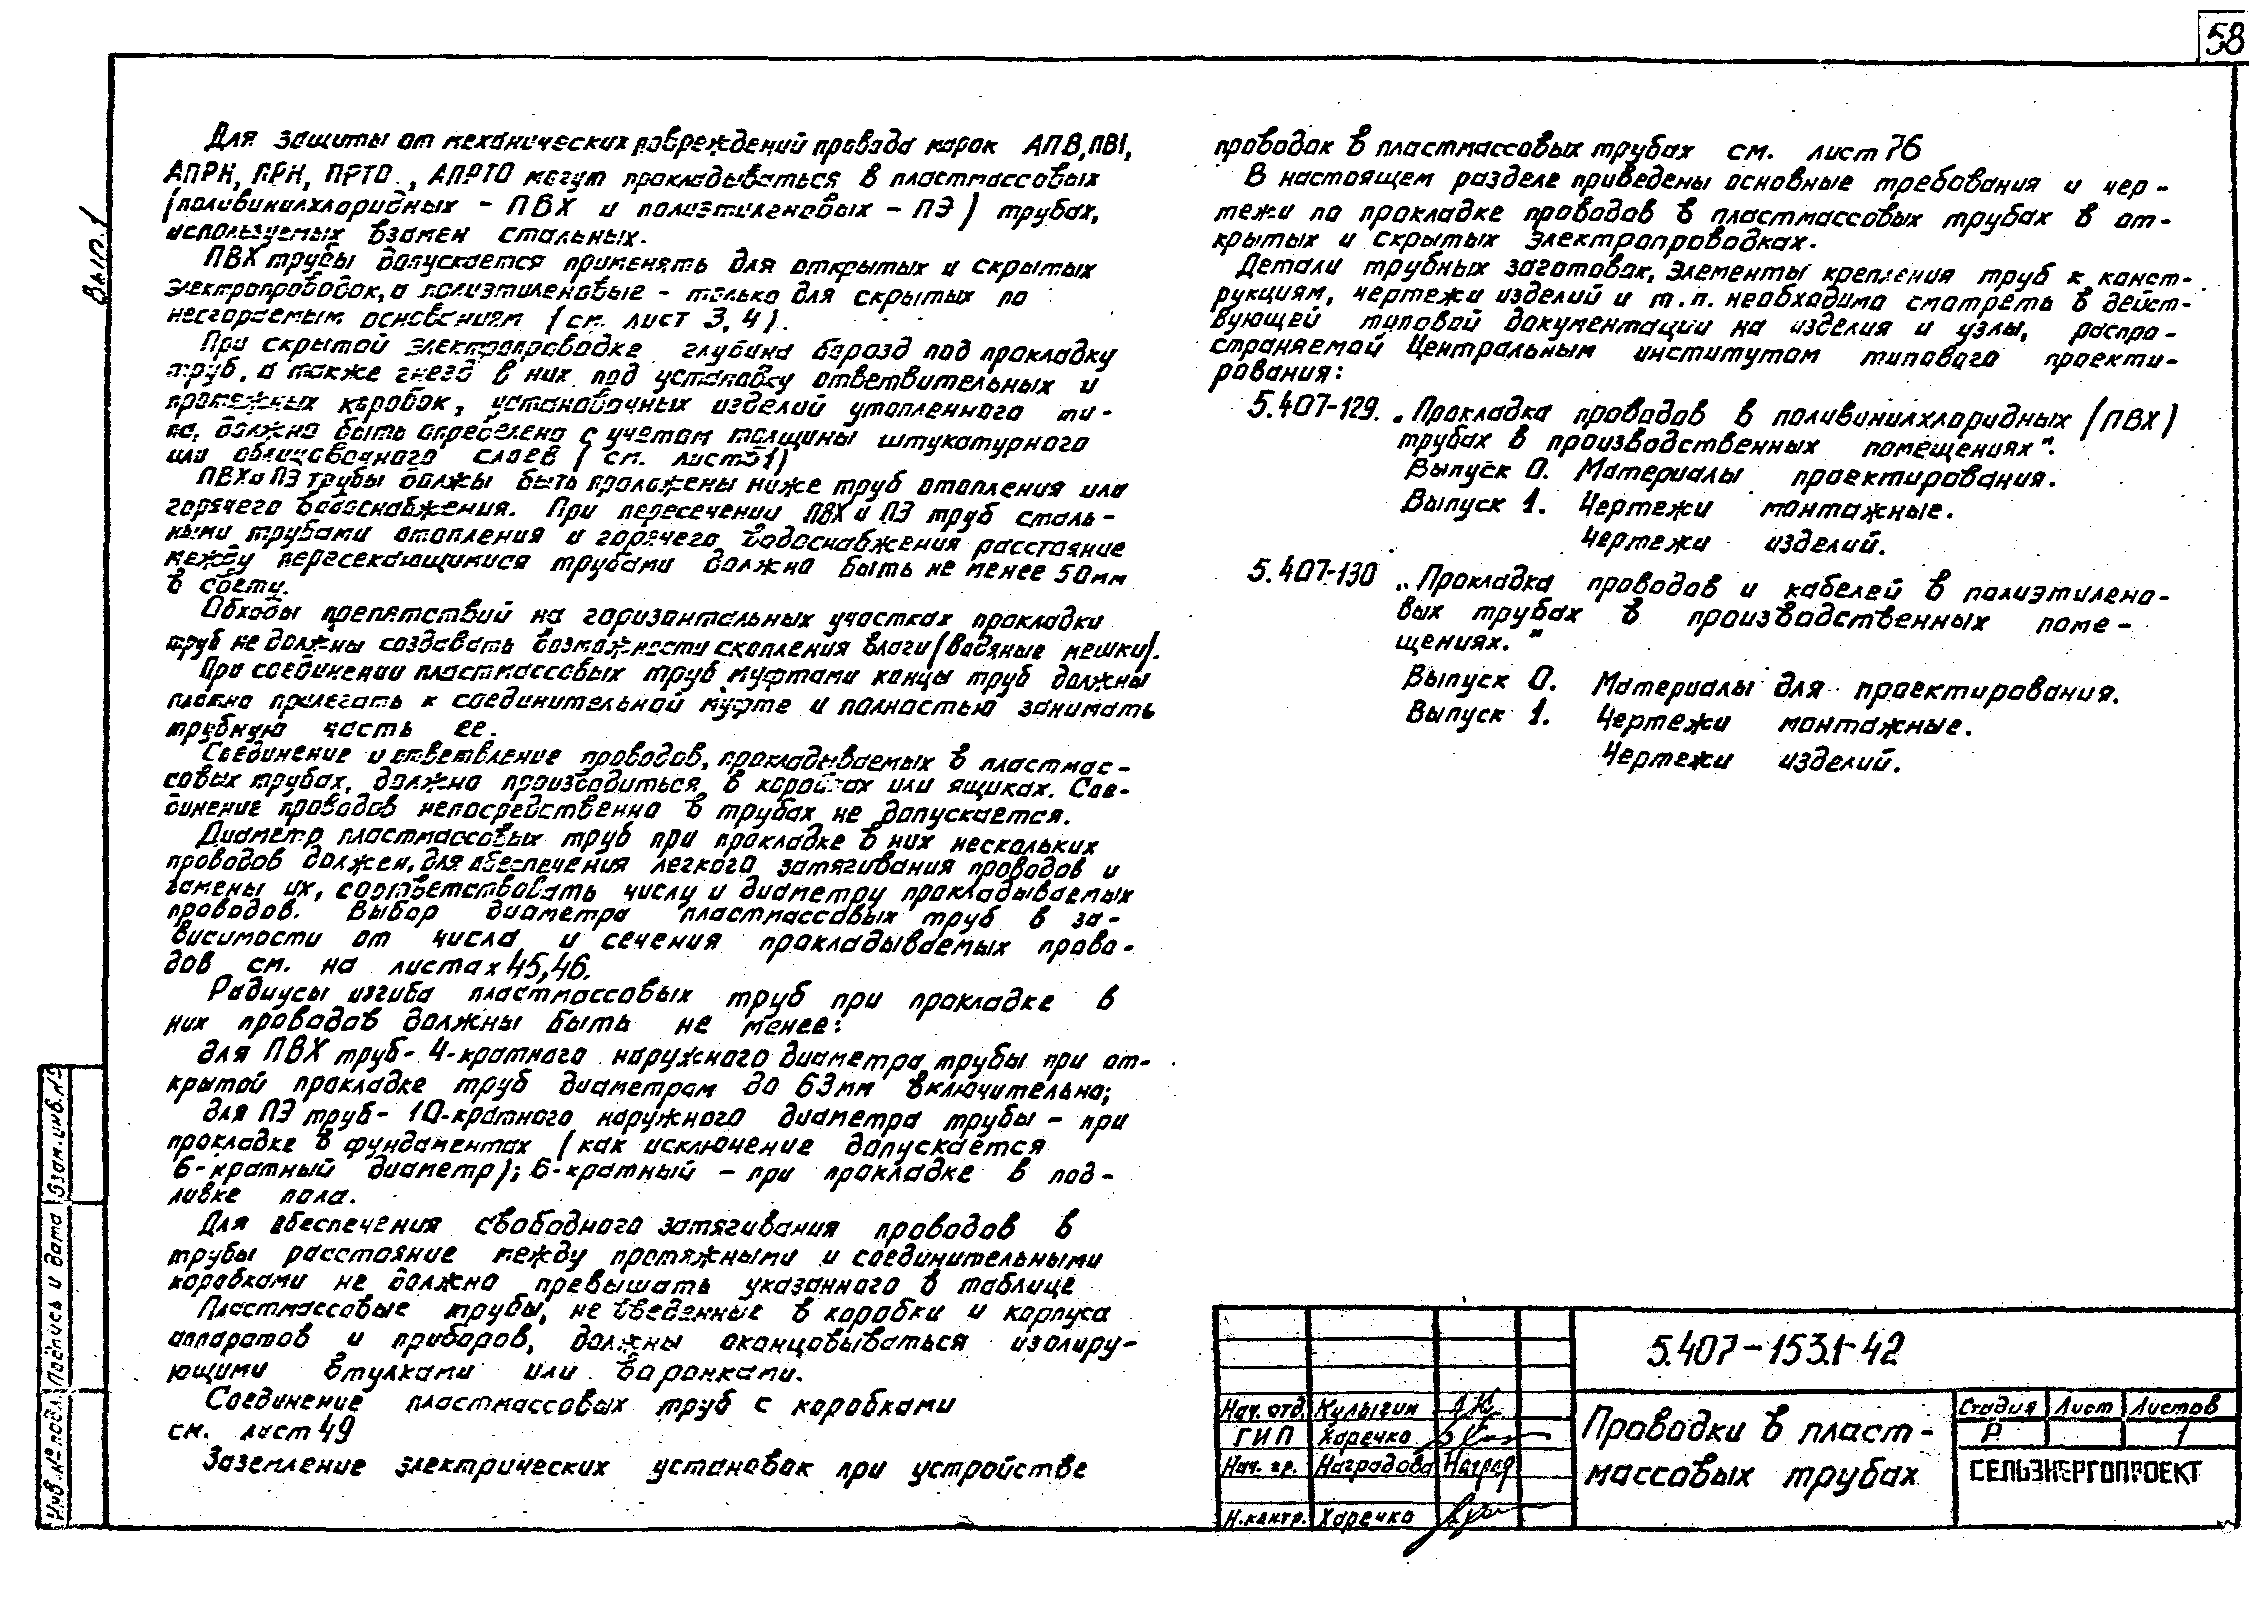 58
Вып.1
Для защиты от механических повреждений провода марок АПВ, ПВ1,
АПРН, ПРН, ПРТО, АПРТО могут прокладываться в пластмассовых
(поливинилхлоридных - ПВХ и полиэтиленовых - ПЭ) трубах,
используемых взамен стальных.
ПВХ трубы допускается применять для открытых и скрытых
электропроводок, а полиэтиленовые - только для скрытых по
несгораемым основаниям (см. лист 3, 4).
При скрытой электропроводке глубина борозд под прокладку
труб, а также гнезд в них под установку ответвительных и
протяжных коробок, установочных изделий утопленного ти-
па, должна быть определена с учетом толщины штукатурного
или облицовочного слоев (см. лист 51)
ПВХ и ПЭ трубы должы быть проложены ниже труб отопления или
горячего водоснабжения. При пересечении ПВХ и ПЭ труб сталь-
ными трубами отопления и горячего водоснабжения расстояние
между пересекающимися трубами должно быть не менее 50мм
в свету.
Обходы препятствий на горизонтальных участках прокладки
труб не должны создавать возможности скопления влаги (водяные мешки).
При соединении пластмассовых труб муфтами концы труб должны
плотно прилегать к соединительной муфте и полностью занимать
трубную часть ее.
Соединение и ответвление проводов, прокладываемых в пластмас-
совых трубах, должно производиться в коробках или ящиках. Сое-
динение проводов непосредственно в трубах не допускается.
Диаметр пластмассовых труб при прокладке в них нескольких
проводов должен, для обеспечения легкого затягивания проводов и
замены их, соответствовать числу и диаметру прокладываемых
проводов. Выбор диаметра пластмассовых труб в за-
висимости от числа и сечения прокладываемых прово-
дов см. на листах 45, 46.
Радиусы изгиба пластмассовых труб при прокладке в
них проводов должны быть не менее:
для ПВХ труб - 4-кратного наружного диаметра трубы при от-
крытой прокладке труб диаметром до 63мм включительно;
для ПЭ труб - 10-кратного наружного диаметра трубы - при
прокладке в фундаментах (как исключение допускается
6-кратный диаметр); 6-кратный - при прокладке в под-
ливке пола.
Для обеспечения свободного затягивания проводов в
трубы расстояние между протяжными и соединительными
коробками не должно превышать указанного в таблице
Пластмассовые трубы, не введенные в коробки и корпуса
аппаратов и приборов, должны оконцовываться изолиру-
ющими втулками или воронками.
Соединение пластмассовых труб с коробками
см. лист 49
Заземление электрических установок при устройстве
проводок в пластмассовых трубах см. лист 76
В настоящем разделе приведены основные требования и чер-
тежи по прокладке проводов в пластмассовых трубах в от-
крытых и скрытых электропроводках.
Детали трубных заготовок, элементы крепления труб к конст-
рукциям, чертежи изделий и т.п. необходимо смотреть в дейст-
вующей типовой документации на изделия и узлы, распро-
страняемой Центральным институтом типового проекти-
рования:
5.407-129. „Прокладка проводов в поливинилхлоридных (ПВХ)
трубах в производственных помещениях".
Выпуск 0. Материалы проектирования.
Выпуск 1. Чертежи монтажные.
Чертежи изделий.
5.407-130 „Прокладка проводов и кабелей в полиэтилено-
вых трубах в производственных поме-
щениях."
Выпуск 0. Материалы для проектирования.
Выпуск 1. Чертежи монтажные.
Чертежи изделий.
5.407-153.1-42
Нач. отд. Кулыгин
ГИП Харечко
Нач. гр. Наградова Наград
Н.контр. Харечко
Проводки в пласт-
массовых трубах
Стадия Лист Листов
Р 1
СЕЛЬЭНЕРГОПРОЕКТ
Взам. инв.№
Подпись и дата
Инв.№ подл.